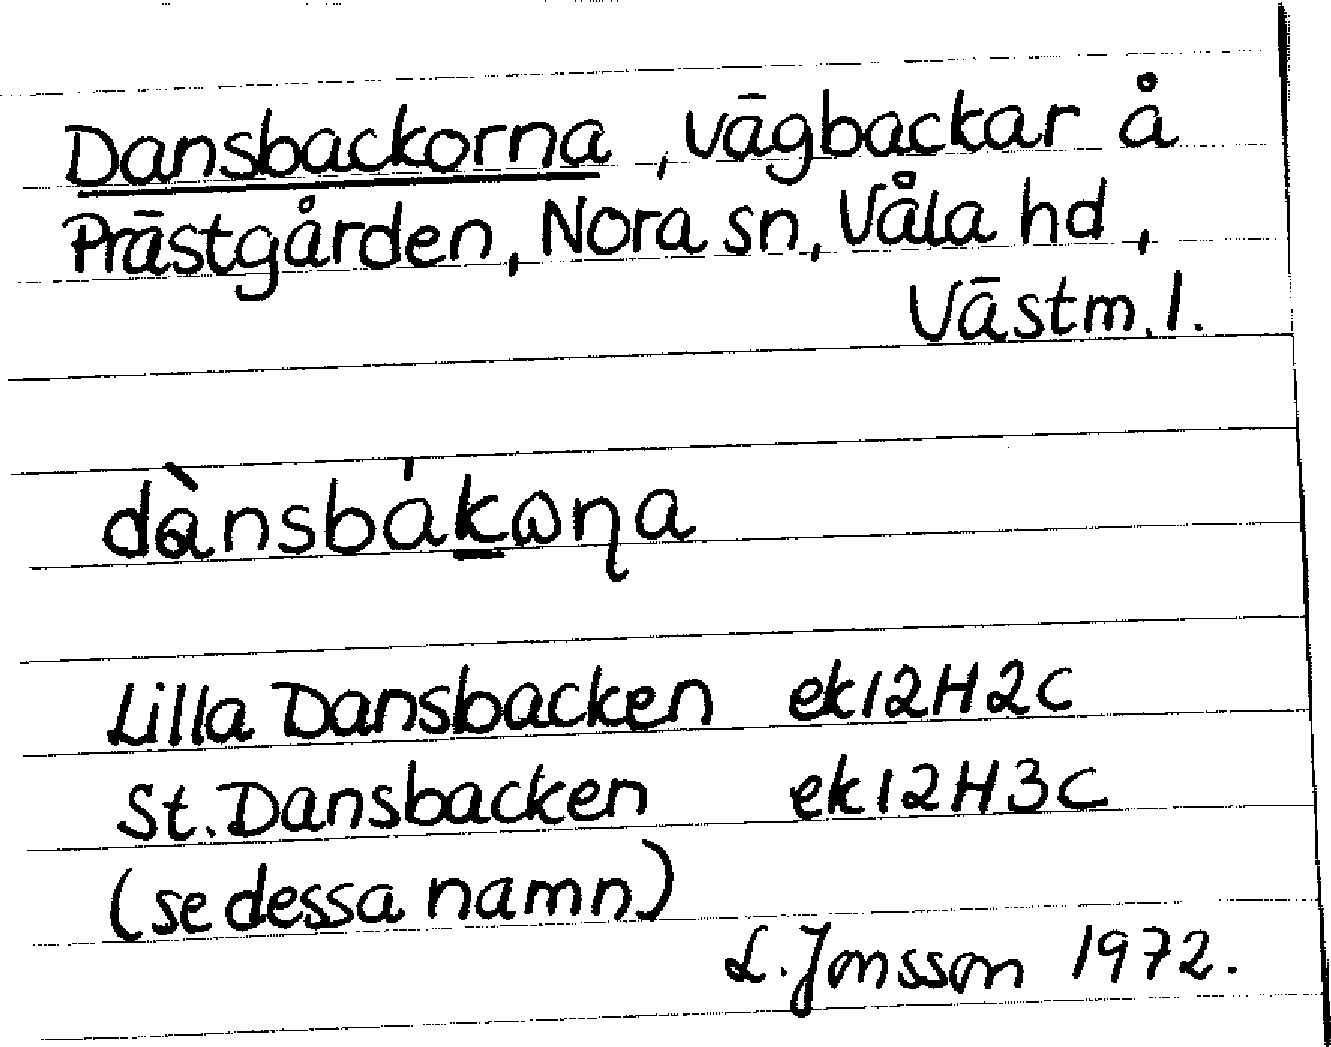 Dansbackorna, vägbackar å
Prästgården, Nora sn, Våla hd,
Västm. l.
dànsbákωɳa
Lilla Dansbacken ek12H2c
St. Dansbacken ek12H3c
(se dessa namn)
L. Jonsson 1972.